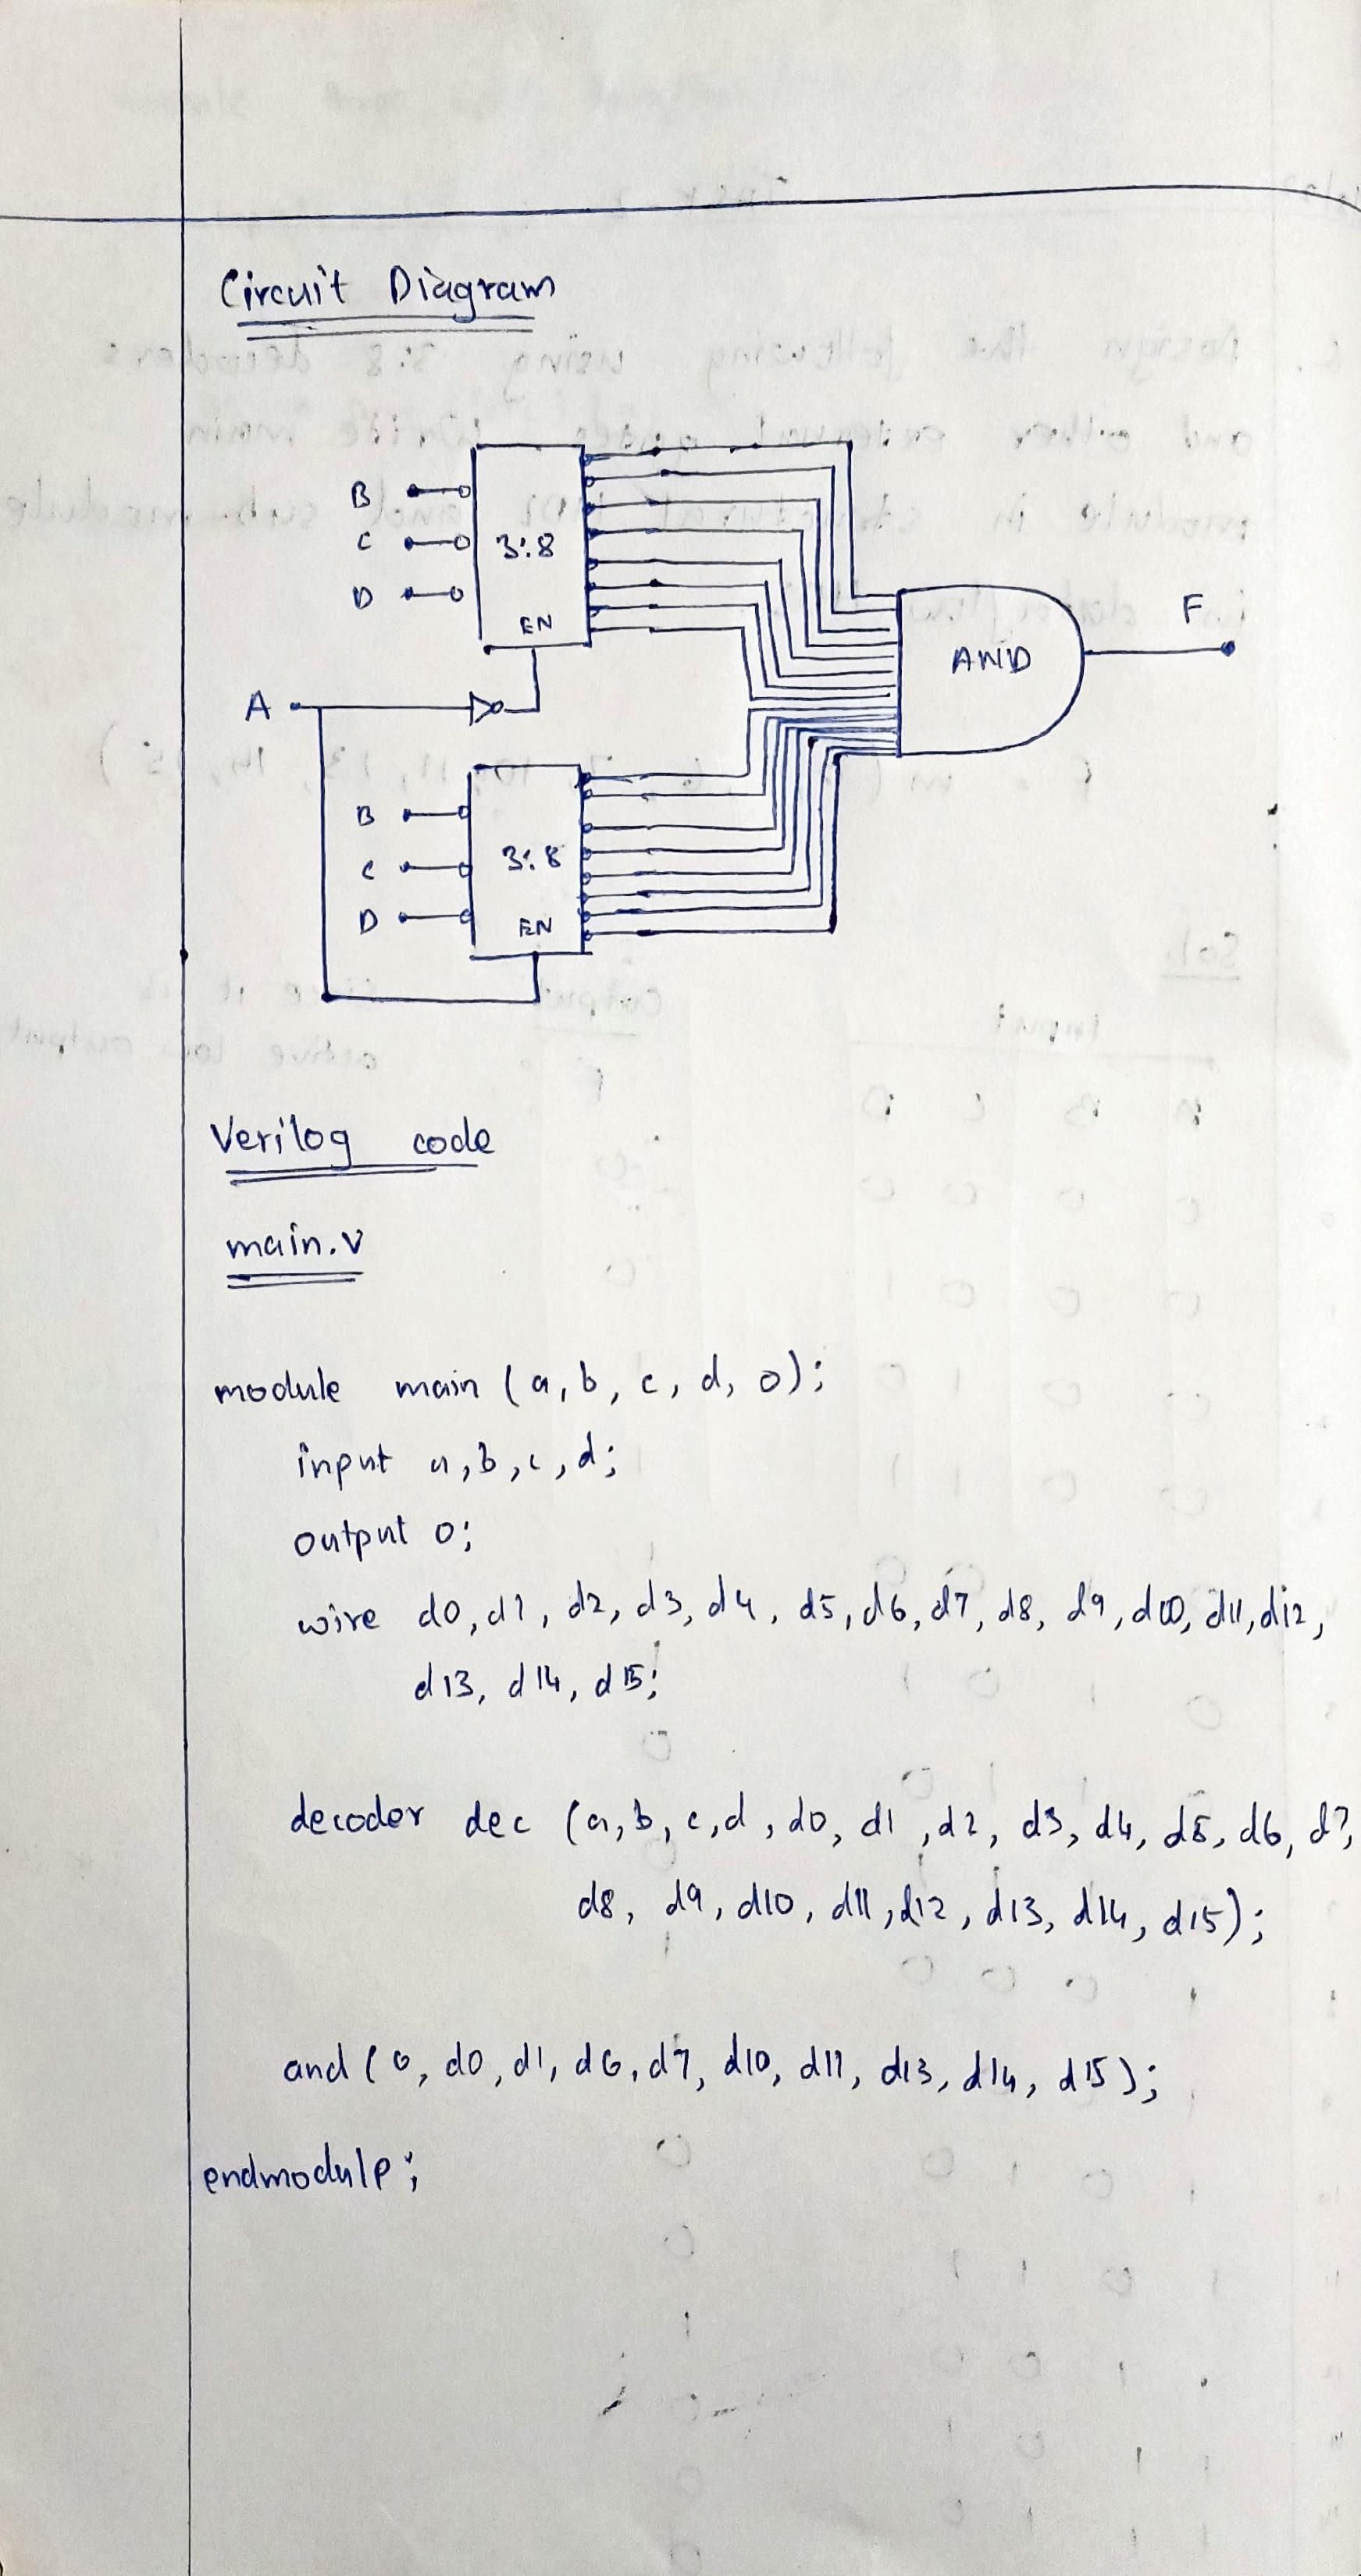 Circuit Diagram
B
C
D
3:8
EN
A
AND
F
B
C
D
3:8
EN
Verilog code
main.v
module main (a, b, c, d, o);
input a, b, c, d;
output o;
wire d0, d1, d2, d3, d4, d5, d6, d7, d8, d9, d10, d11, d12,
d13, d14, d15;
decoder dec (a, b, c, d, d0, d1, d2, d3, d4, d5, d6, d7,
d8, d9, d10, d11, d12, d13, d14, d15);
and (o, d0, d1, d6, d7, d10, d11, d13, d14, d15);
endmodule;